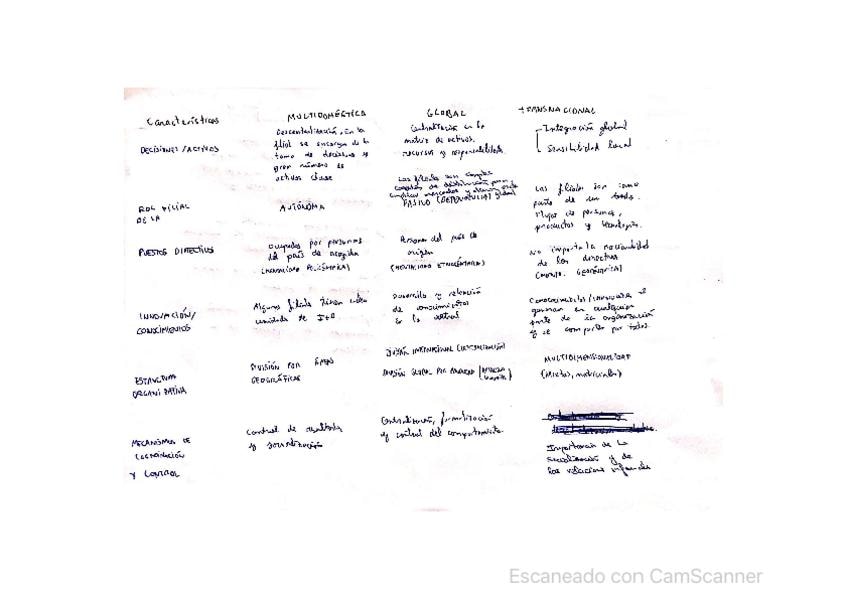 Características
MULTIDOMÉSTICA
GLOBAL
TRANSNACIONAL
DECISIONES/ACTIVOS
Descentralización, en la
filial se encarga de la
toma de decisiones y
gran número de
activos clave
Centralización en la
matriz de activos,
recursos y responsabilidades
Integración global
Sensibilidad local
ROL FILIAL
DE LA
AUTÓNOMA
Las filiales son simples
canales de distribución para
PASIVO (DEPENDENCIA) global
Las filiales son como
parte de un todo.
Flujo de personas,
productos y tecnología.
PUESTOS DIRECTIVOS
Ocupados por personas
del país de acogida
(MENTALIDAD POLICÉNTRICA)
Personas del país de
origen
(MENTALIDAD ETNOCÉNTRICA)
No importa la nacionalidad
de los directivos
(MENTA. GEOCÉNTRICA)
INNOVACIÓN/
CONOCIMIENTOS
Algunas filiales tienen
unidades de I+D
Desarrollo y retención
de conocimientos
en la central
Conocimientos/ se
generan en cualquier
parte de la organización
y se comparte por todos.
ESTRUCTURA
ORGANIZATIVA
DIVISIÓN POR ÁREAS
GEOGRÁFICAS
DIVISIÓN INTERNACIONAL (CENTRALIZACIÓN)
DIVISIÓN GLOBAL POR PRODUCTO
MULTIDIMENSIONALIDAD
(Mixtas, matriciales)
MECANISMOS DE
COORDINACIÓN
Y CONTROL
Control de resultados
y socialización
Centralización, formalización
y control del comportamiento
Importancia de la
socialización y de
las relaciones informales
Escaneado con CamScanner